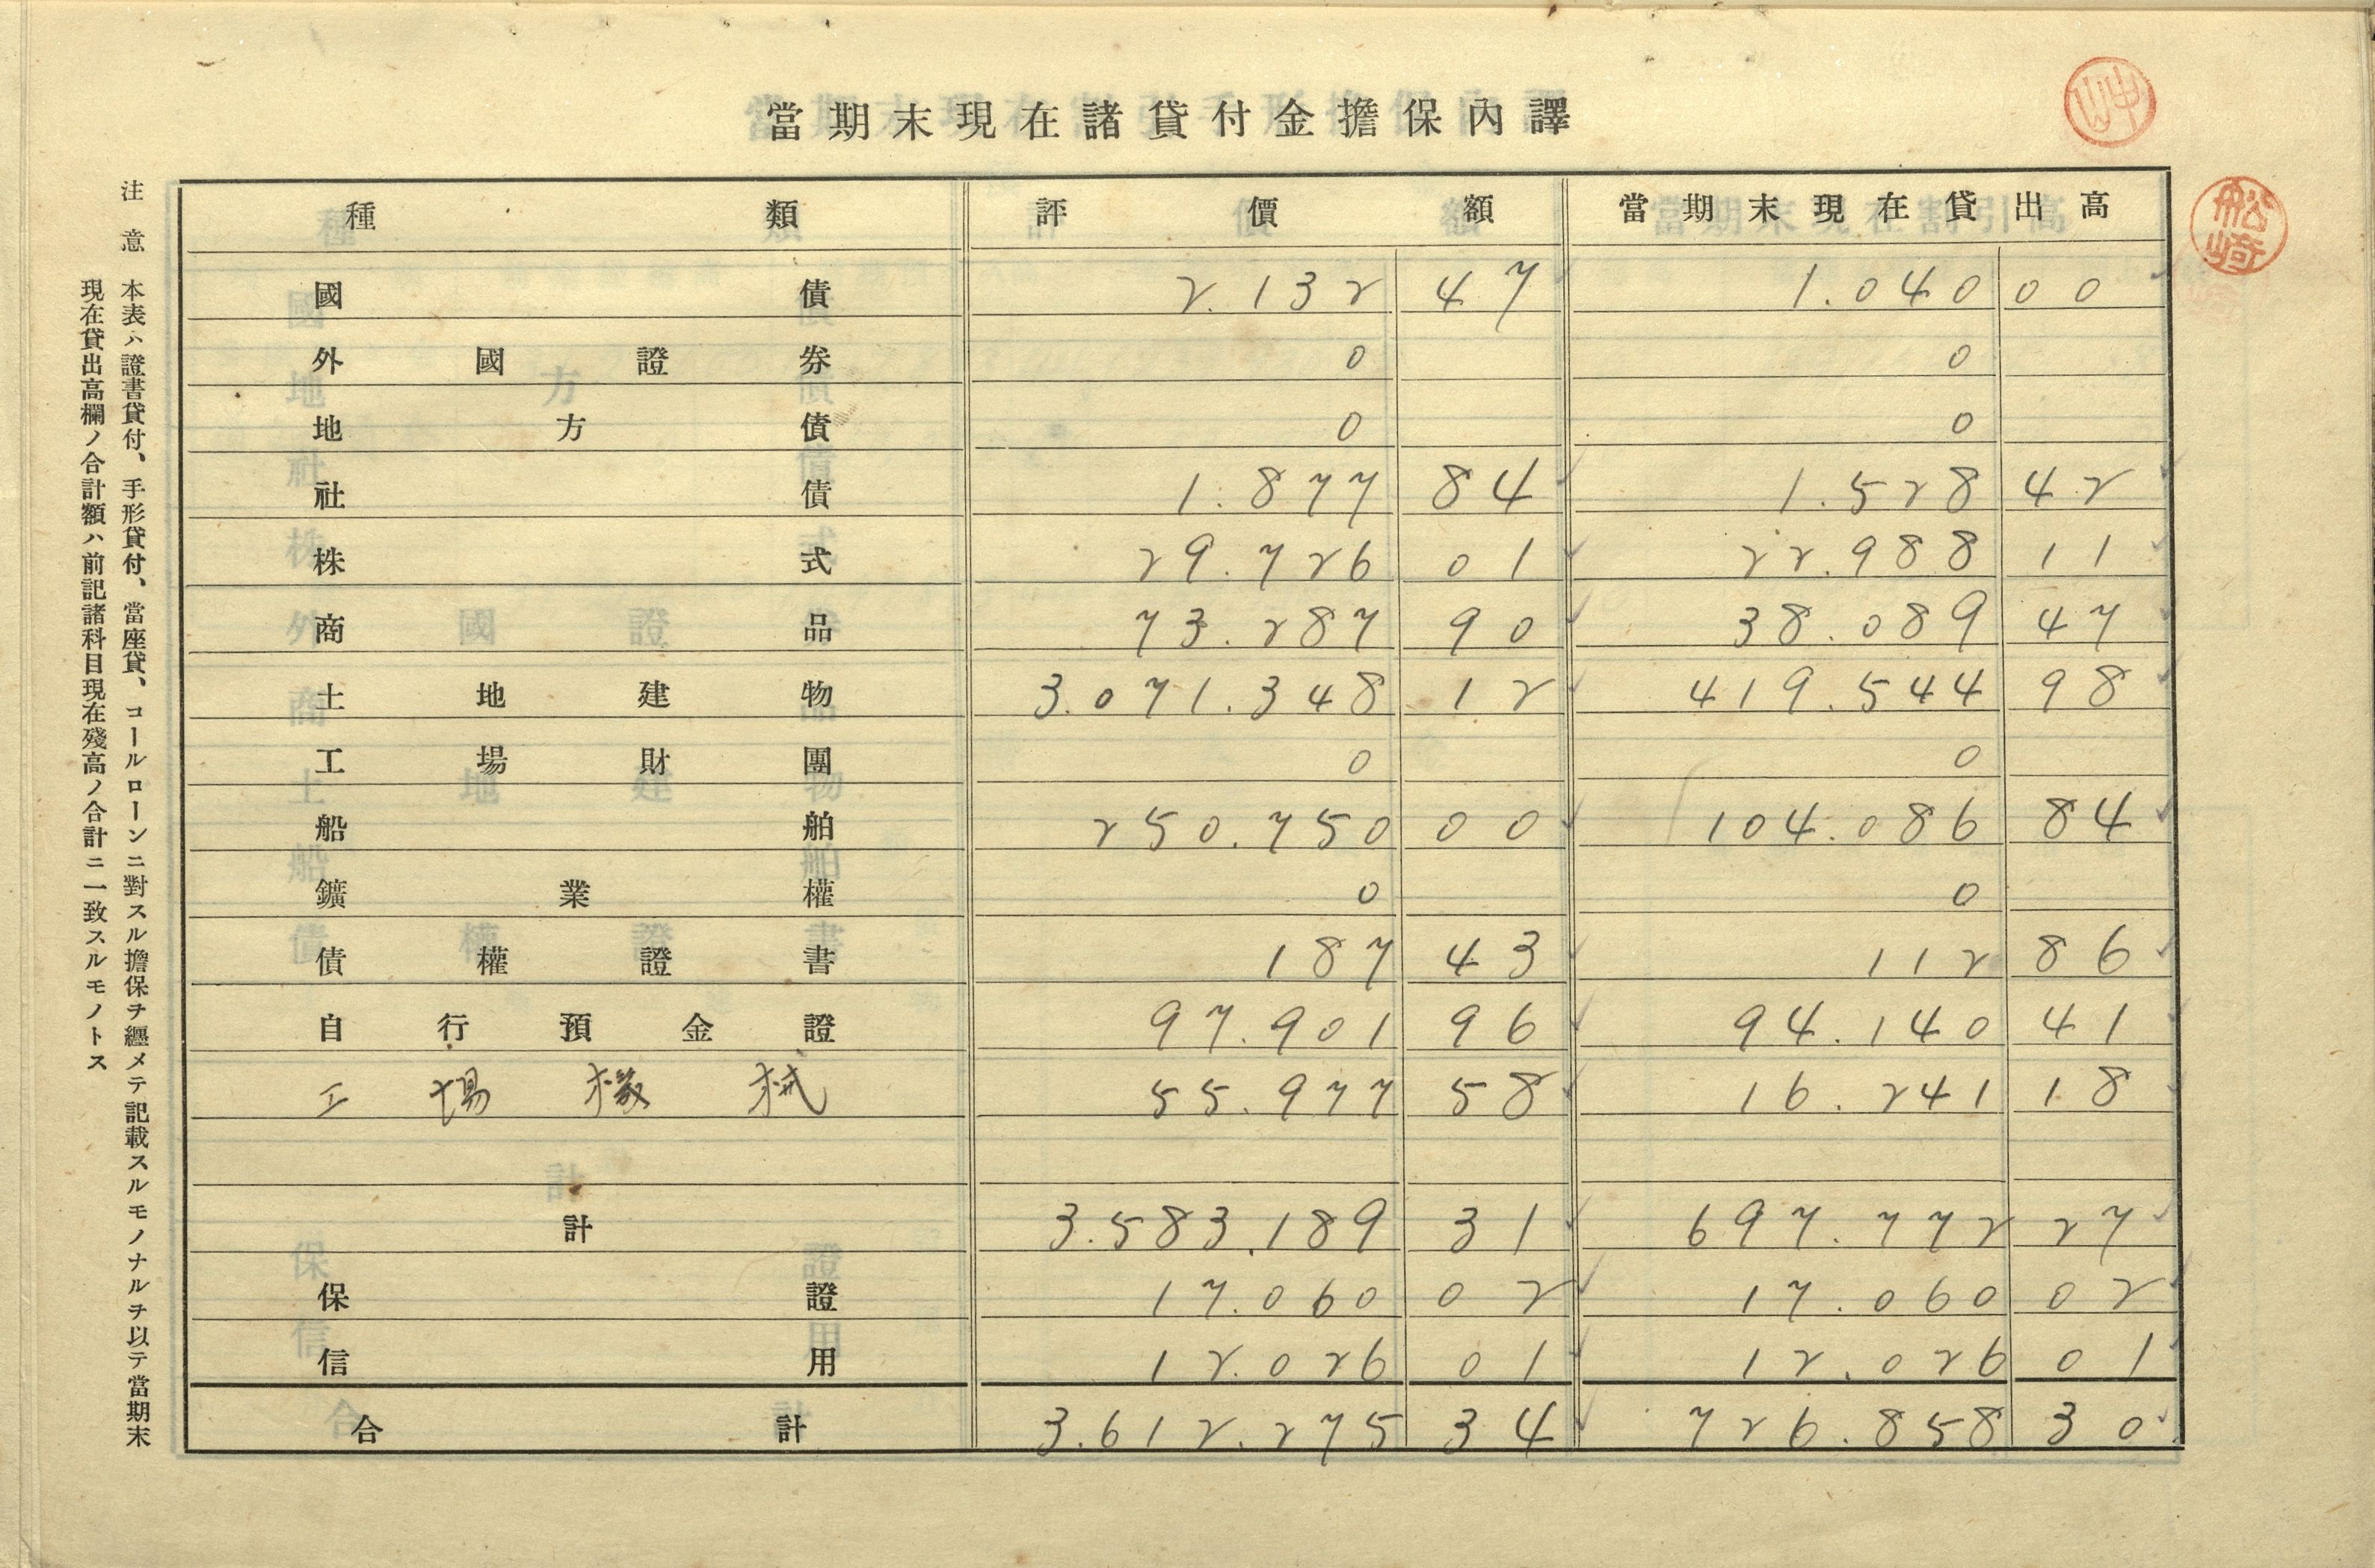 當期末現在諸貸付金擔保內譯
種類 評價額 當期末現在貸出高
國債 2.132 47 1.040 00
外國證券 0 0
地方債 0 0
社債 1.877 84 1.528 42
株式 29.726 01 22.988 11
商品 73.287 90 38.089 47
土地建物 3.071.348 12 419.544 98
工場財團 0 0
船舶 250.750 00 104.086 84
鑛業權 0 0
債權證書 187 43 112 86
自行預金證 97.901 96 94.140 41
工場機械 55.977 58 16.241 18
計 3.583.189 31 697.772 27
保證 17.060 02 17.060 02
信用 12.026 01 12.026 01
合計 3.612.275 34 726.858 30
注意 本表ハ證書貸付、手形貸付、當座貸、コールローンニ對スル擔保ヲ纒メテ記載スルモノナルヲ以テ當期末
現在貸出高欄ノ合計額ハ前記諸科目現在殘高ノ合計ニ一致スルモノトス
船崎